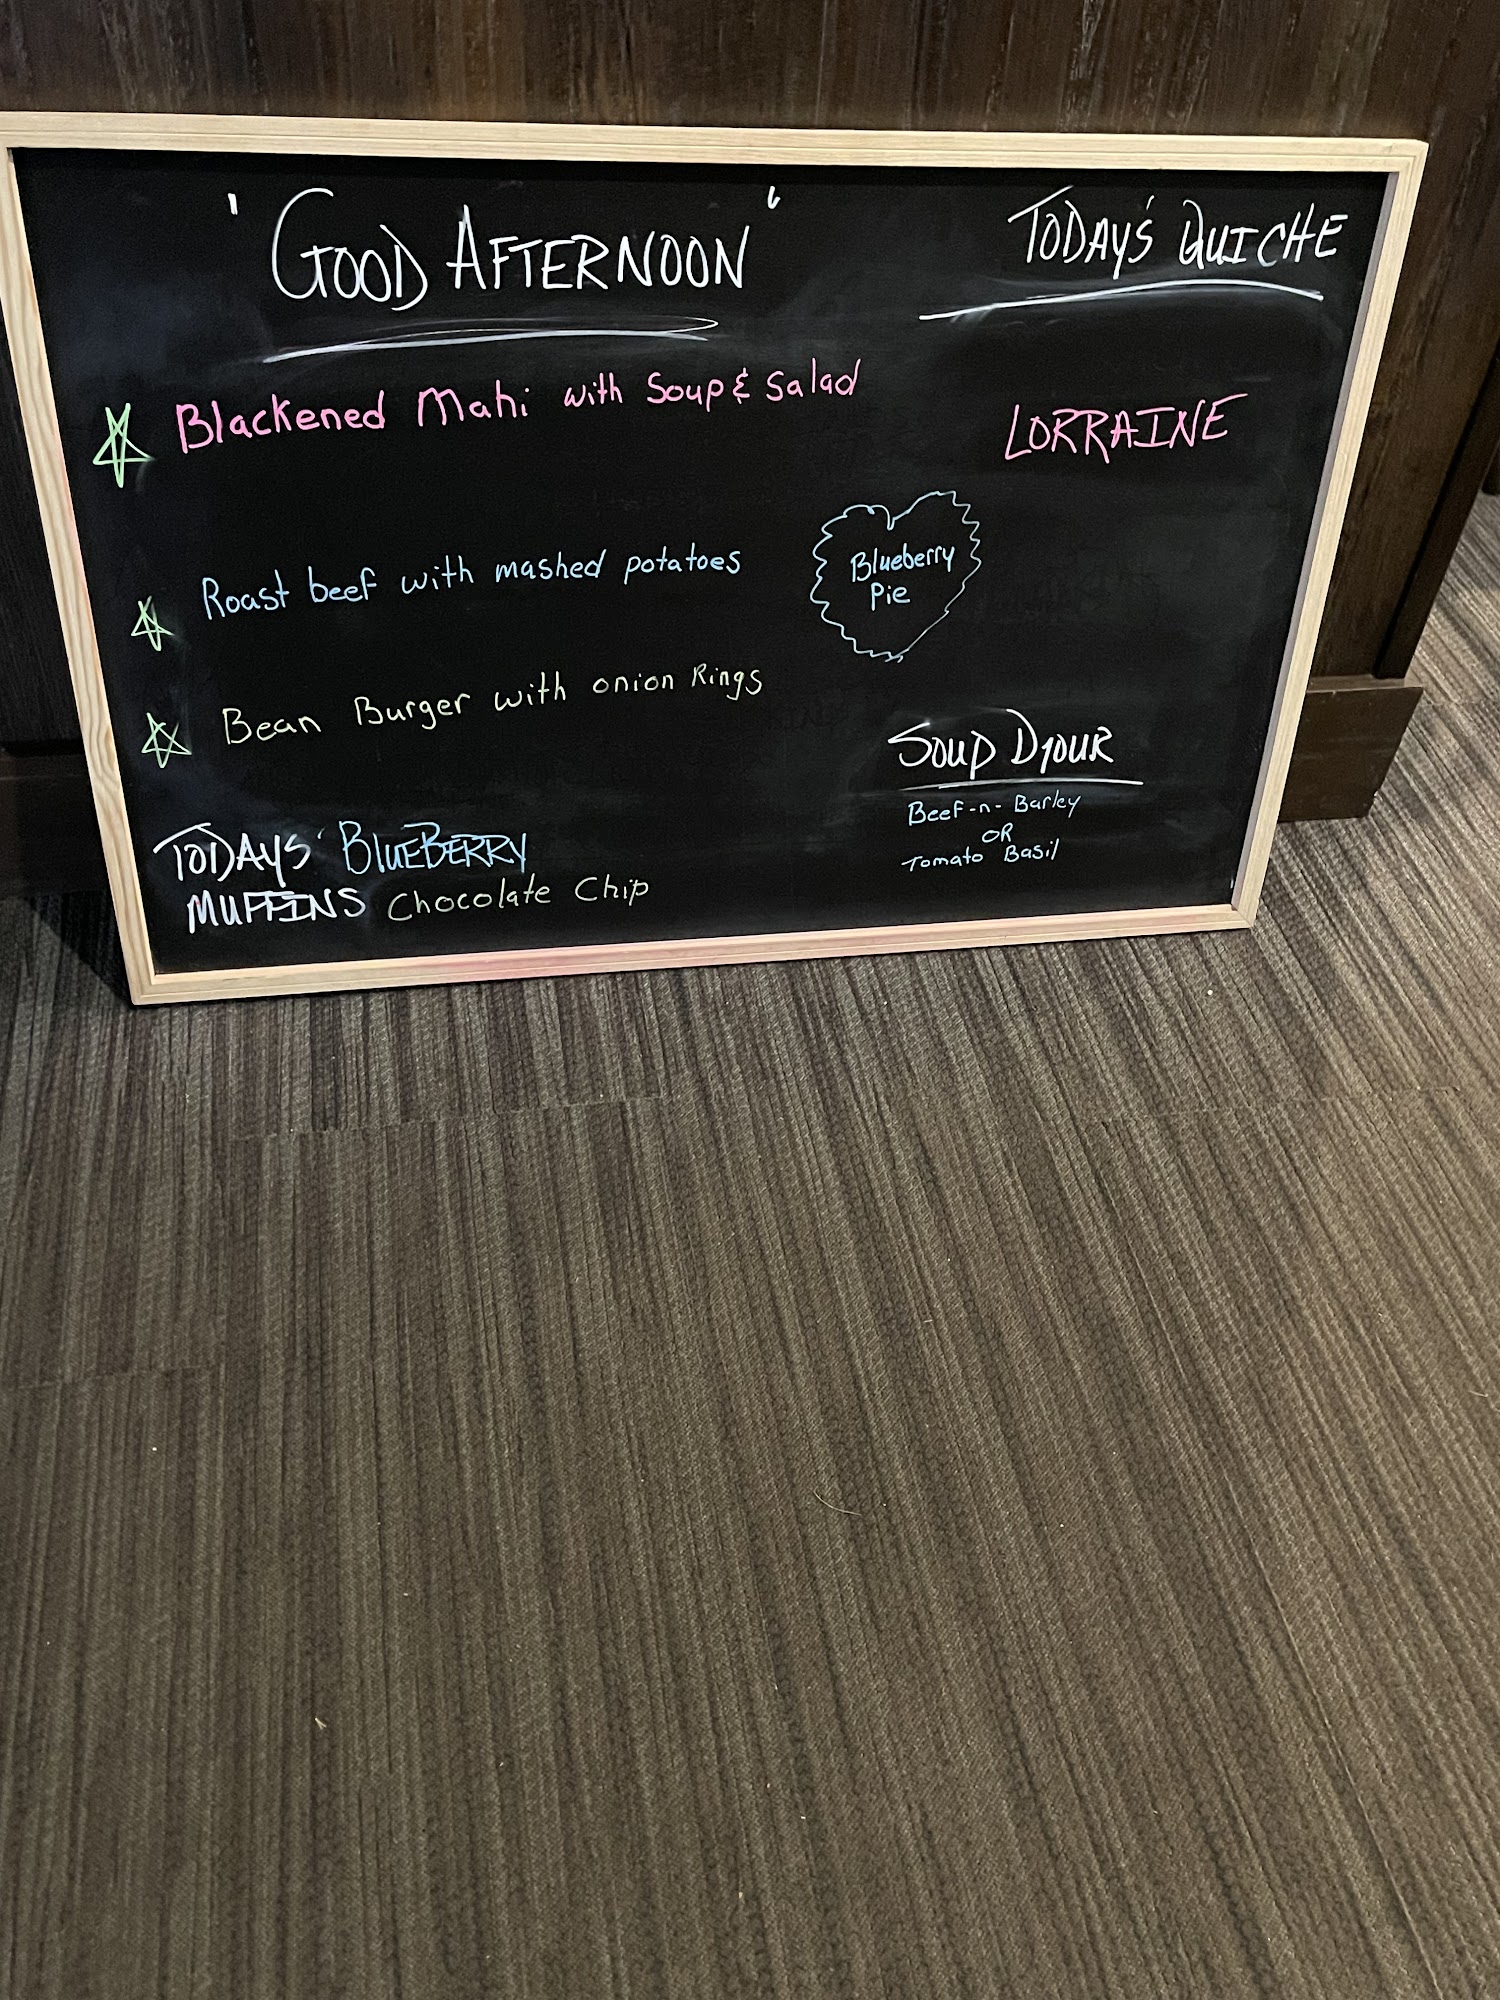 'GOOD AFTERNOON'
Blackened Mahi with Soup & Salad
Roast beef with mashed potatoes
Bean Burger with onion Rings
TODAYS' BLUEBERRY
MUFFINS Chocolate Chip
TODAY'S QUICHE
LORRAINE
Blueberry
Pie
SOUP DJOUR
Beef-n-Barley
OR
Tomato Basil